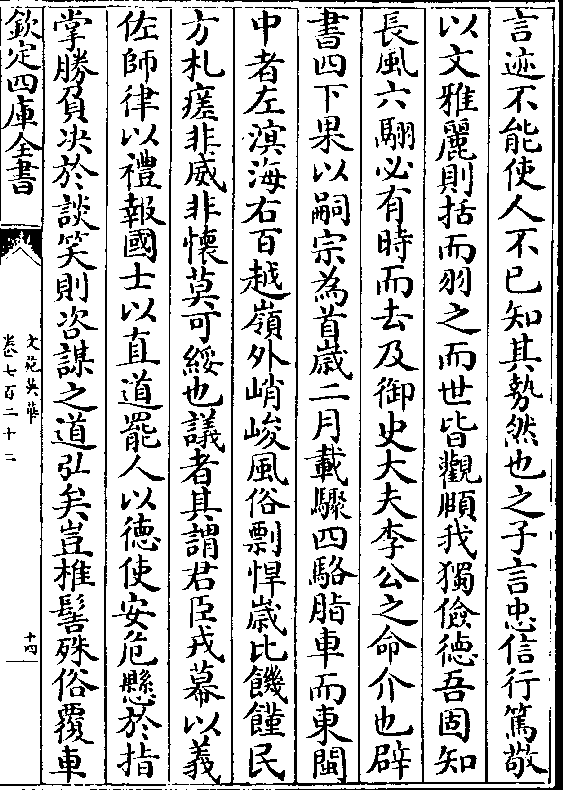 言迹不能使人不已知其勢然也之子言忠信行篤敬
以文雅麗則括而羽之而世皆觀頤我獨儉德吾固知
長風六翮必有時而去及御史大夫李公之命介也辟
書四下果以嗣宗為首歳二月載驟四駱脂車而東閩
中者左溟海右百越嶺外峭峻風俗剽悍歳比饑饉民
方札瘥非威非懷莫可綏也議者其謂君臣戎幕以義
佐師律以禮報國士以直道罷人以德使安危懸於指
掌勝負决於談笑則咨謀之道弘矣豈椎髻殊俗覆車
欽定四庫全書
文苑英華
卷七百二十二
十四